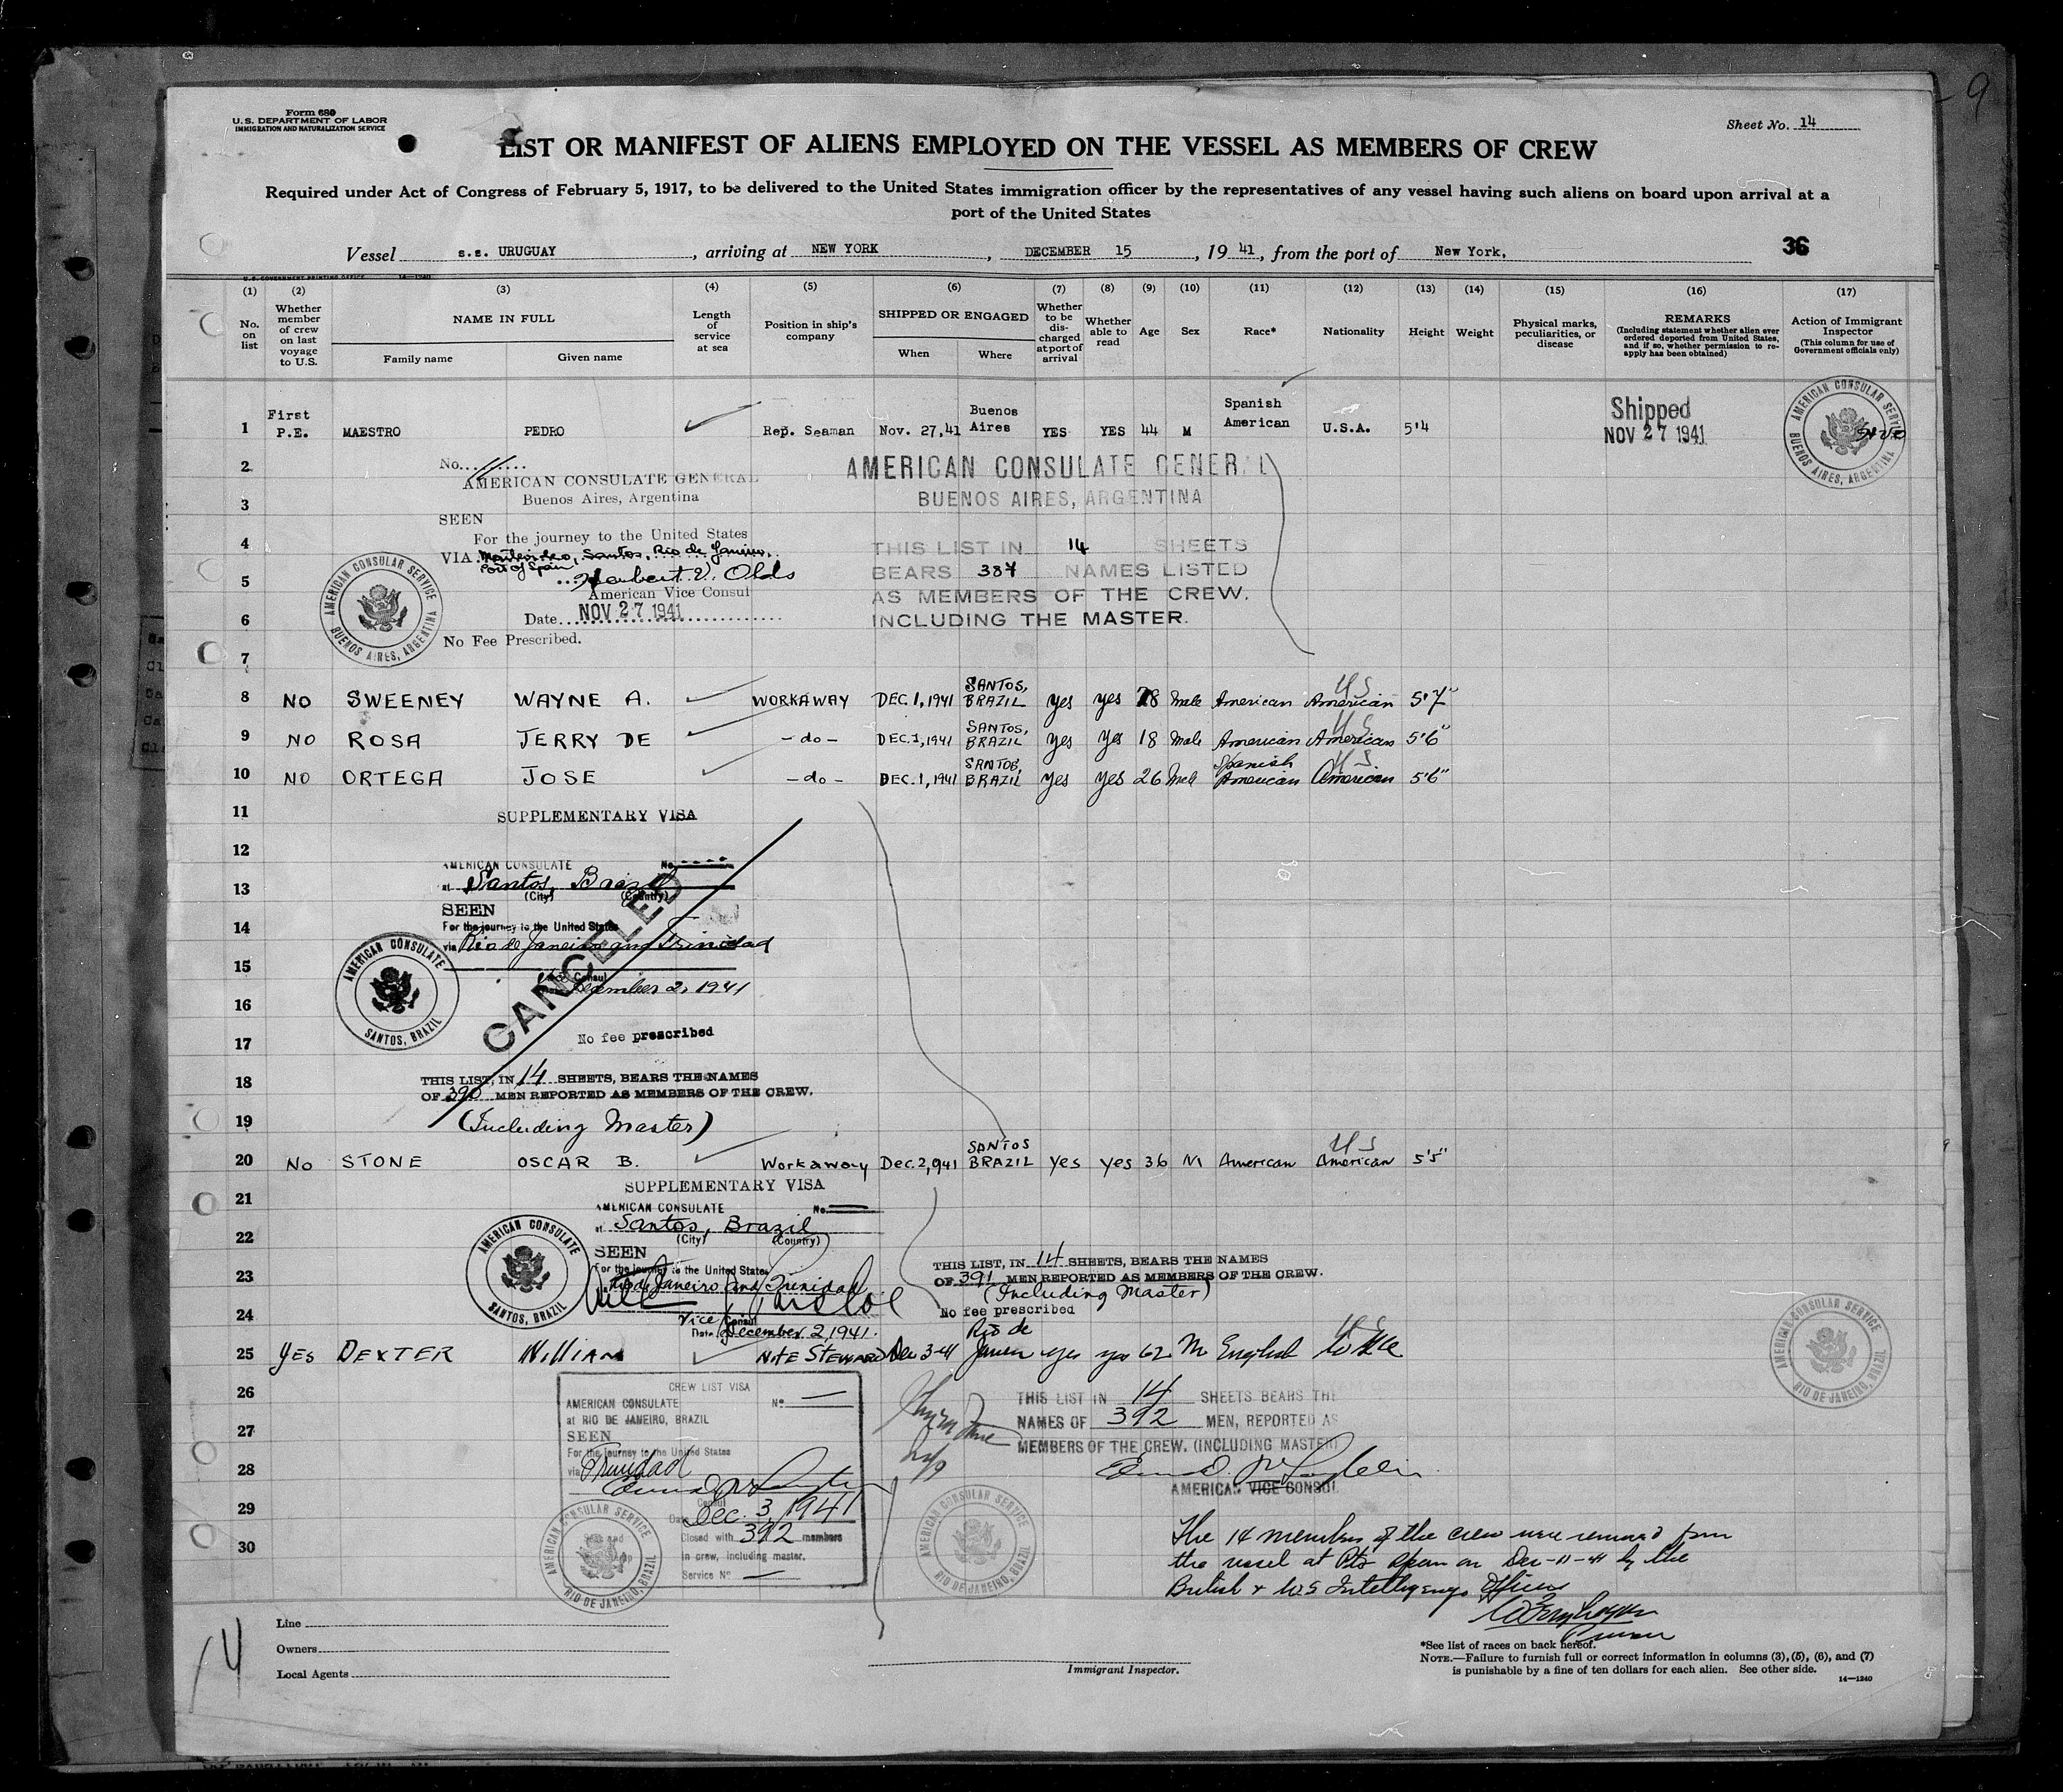 9
Form 680
U.S. DEPARTMENT OF LABOR
IMMIGRATION AND NATURALIZATION SERVICE
Sheet No. 14
LIST OR MANIFEST OF ALIENS EMPLOYED ON THE VESSEL AS MEMBERS OF CREW
Required under Act of Congress of February 5, 1917, to be delivered to the United States immigration officer by the representatives of any vessel having such aliens on board upon arrival at a
port of the United States
Vessel s.s. URUGUAY, arriving at NEW YORK, DECEMBER 15, 1941, from the port of New York, 36
U.S. GOVERNMENT PRINTING OFFICE 14—1240
(1) (2) (3) (4) (5) (6) (7) (8) (9) (10) (11) (12) (13) (14) (15) (16) (17)
No. on list
Whether member of crew on last voyage to U.S.
NAME IN FULL
Family name Given name
Length of service at sea
Position in ship's company
SHIPPED OR ENGAGED
When Where
Whether to be discharged at port of arrival
Whether able to read
Age Sex Race* Nationality Height Weight
Physical marks, peculiarities, or disease
REMARKS
(Including statement whether alien ever ordered deported from United States, and if so, whether permission to reapply has been obtained)
Action of Immigrant Inspector
(This column for use of Government officials only)
1 First P.E. MAESTRO PEDRO Rep. Seaman Nov. 27,41 Buenos Aires YES YES 44 M Spanish American U.S.A. 5'4 Shipped NOV 27 1941
AMERICAN CONSULAR SERVICE BUENOS AIRES, ARGENTINA
2 No.
AMERICAN CONSULATE GENERAL
Buenos Aires, Argentina
AMERICAN CONSULATE GENERAL
BUENOS AIRES, ARGENTINA
3
SEEN
For the journey to the United States
4
VIA Montevideo, Santos, Rio de Janeiro,
Port of Spain,
THIS LIST IN 14 SHEETS
5
Herbert V. Olds
American Vice Consul
BEARS 387 NAMES LISTED
AS MEMBERS OF THE CREW.
6
Date NOV 27 1941
INCLUDING THE MASTER.
No Fee Prescribed.
AMERICAN CONSULAR SERVICE BUENOS AIRES, ARGENTINA
7
8 NO SWEENEY WAYNE A. WORKAWAY DEC.1,1941 SANTOS, BRAZIL yes yes 28 Male American US American 5'7"
9 NO ROSA JERRY DE -do- DEC.1,1941 SANTOS, BRAZIL yes yes 18 Male American US American 5'6"
10 NO ORTEGA JOSE -do- DEC.1,1941 SANTOS, BRAZIL yes yes 26 Male Spanish American US American 5'6"
11
SUPPLEMENTARY VISA
12
AMERICAN CONSULATE No.
13
at Santos, Brazil
(City) (Country)
SEEN
14
For the journey to the United States
via Rio de Janeiro and Trinidad
15
Vice Consul
December 2, 1941
16
CANCELED
AMERICAN CONSULATE SANTOS, BRAZIL
17
No fee prescribed
18
THIS LIST, IN 14 SHEETS, BEARS THE NAMES
OF 390 MEN REPORTED AS MEMBERS OF THE CREW.
19
(Including Master)
20 No STONE OSCAR B. Workaway Dec.2,941 SANTOS BRAZIL yes yes 36 M American US American 5'5"
SUPPLEMENTARY VISA
21
AMERICAN CONSULATE No.
22
at Santos, Brazil
(City) (Country)
SEEN
23
For the journey to the United States
Rio de Janeiro and Trinidad
THIS LIST, IN 14 SHEETS, BEARS THE NAMES
OF 391 MEN REPORTED AS MEMBERS OF THE CREW.
(Including Master)
24
Vice Consul
Date December 2, 1941.
No fee prescribed
AMERICAN CONSULATE SANTOS, BRAZIL
25 YES DEXTER WILLIAM NITE STEWARD Dec 3-41 Rio de Janeiro yes yes 62 M English US
AMERICAN CONSULAR SERVICE RIO DE JANEIRO, BRAZIL
26
CREW LIST VISA
AMERICAN CONSULATE No. —
at RIO DE JANEIRO, BRAZIL
SEEN
For the journey to the United States
via Trinidad
Consul
Date Dec. 3, 1941
Closed with 392 members
in crew, including master.
Service No. —
THIS LIST IN 14 SHEETS BEARS THE
NAMES OF 392 MEN, REPORTED AS
MEMBERS OF THE CREW. (INCLUDING MASTER)
AMERICAN VICE CONSUL
27
28
29
30
AMERICAN CONSULAR SERVICE RIO DE JANEIRO, BRAZIL
AMERICAN CONSULAR SERVICE RIO DE JANEIRO, BRAZIL
The 14 members of the crew were removed from
the vessel at Pto Spain on Dec-11-41 by the
British & US Intelligence Officers
14
Line
Owners
Local Agents
Immigrant Inspector.
*See list of races on back hereof.
NOTE.—Failure to furnish full or correct information in columns (3), (5), (6), and (7)
is punishable by a fine of ten dollars for each alien. See other side.
14—1240